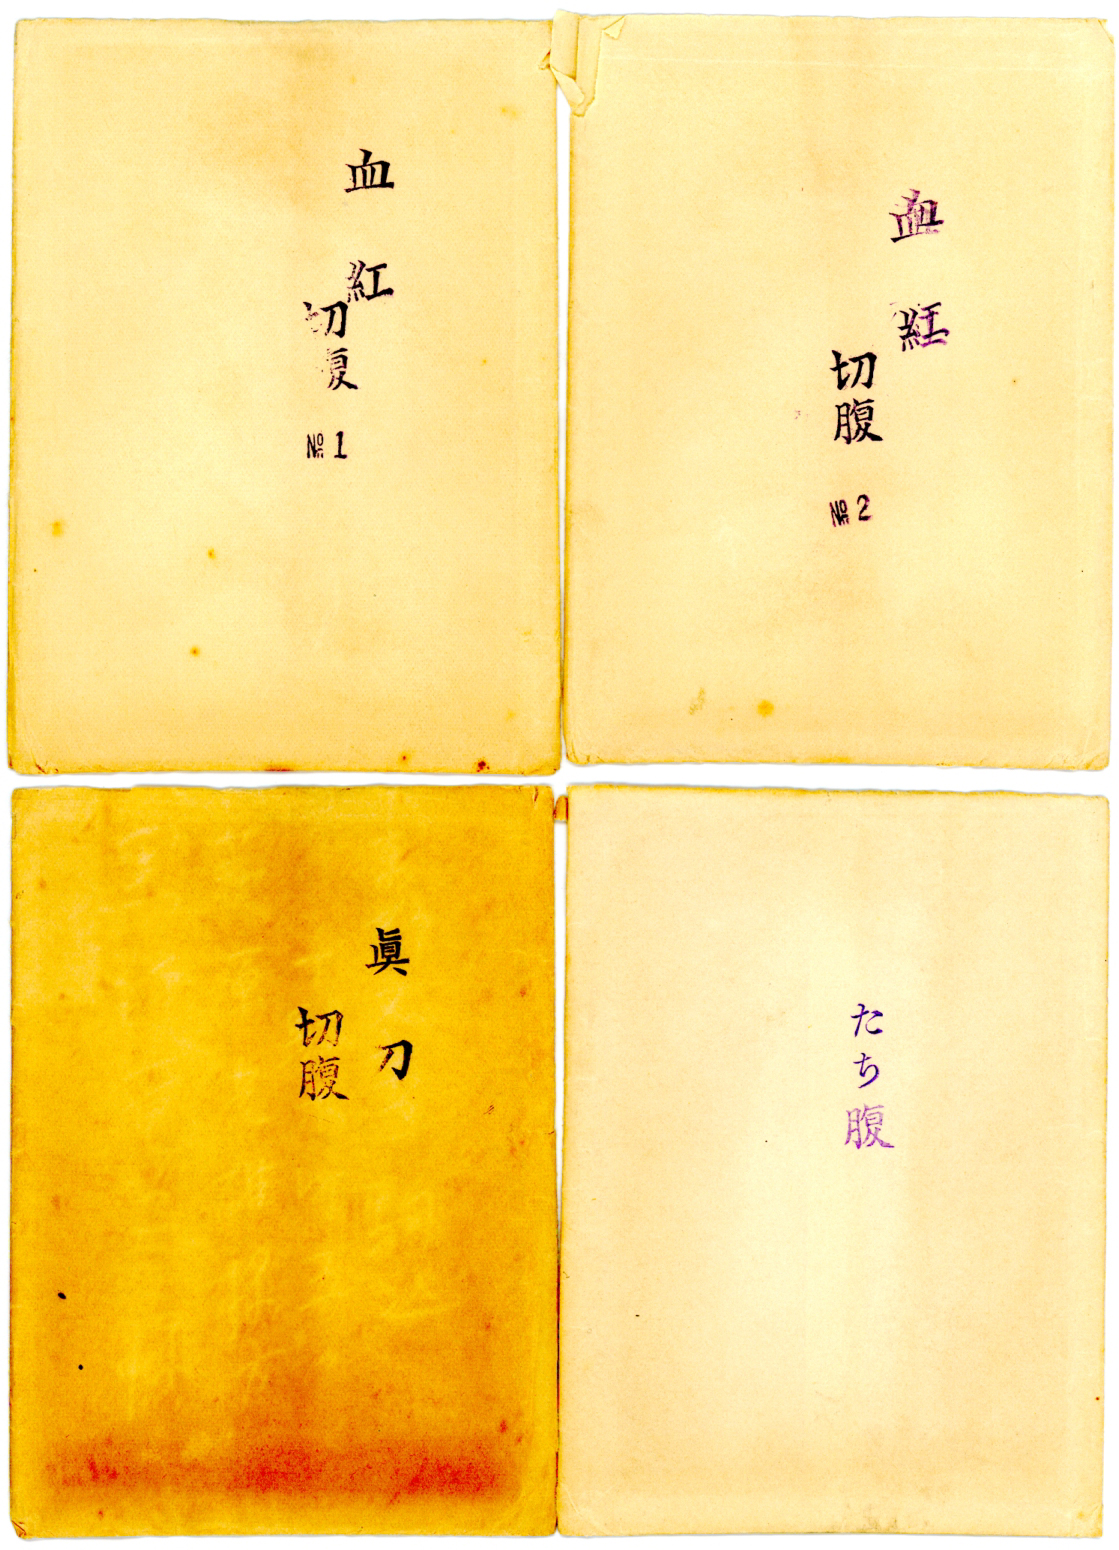 血紅
切腹
№1
血紅
切腹
№2
眞刀
切腹
たち腹